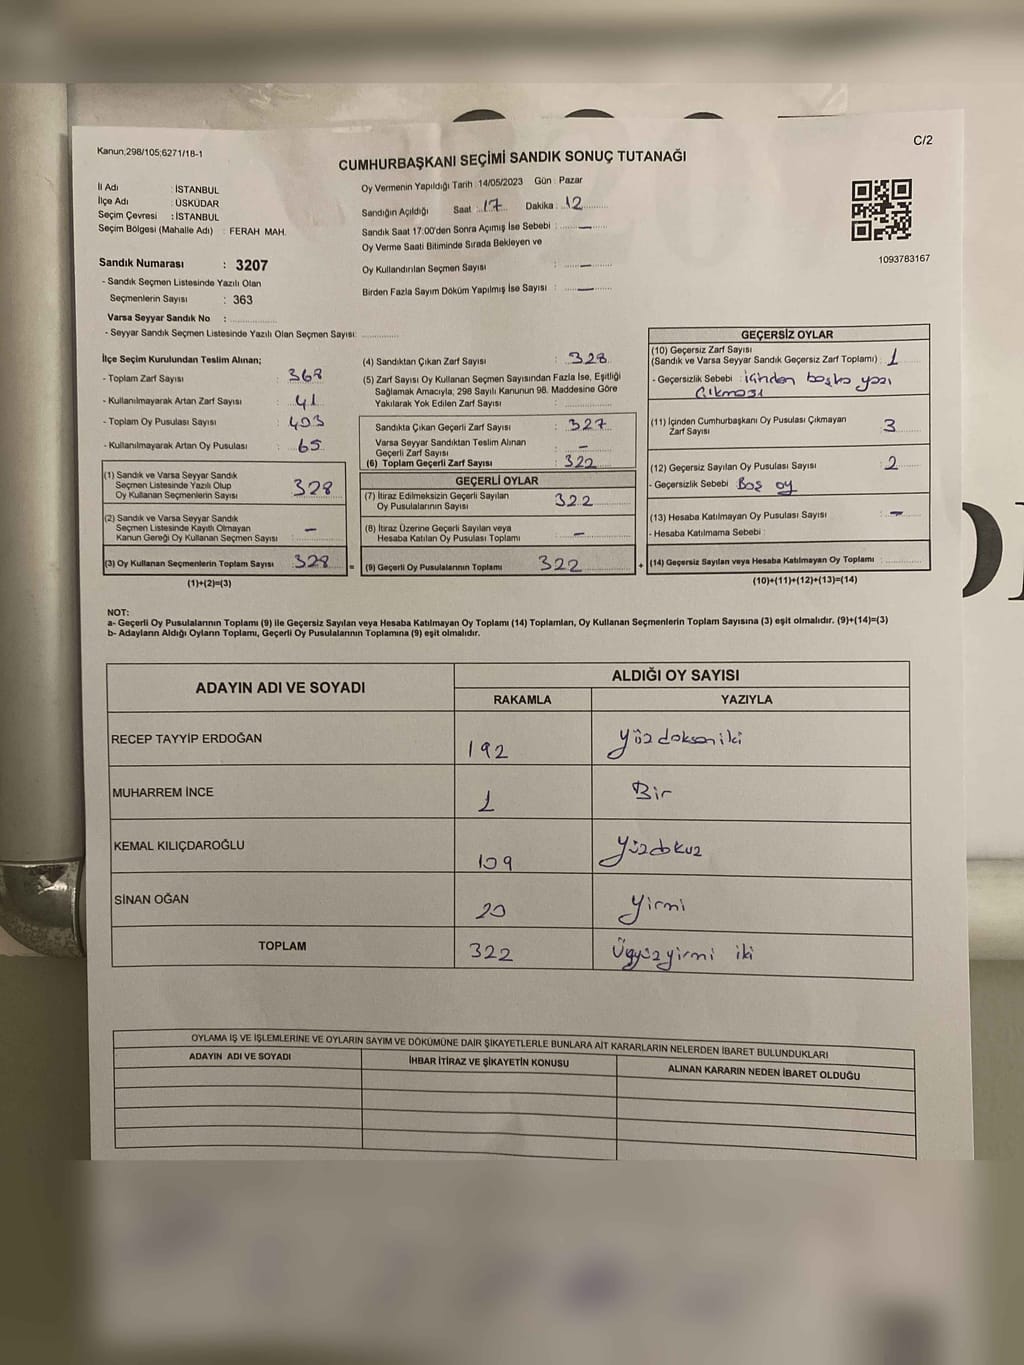 Kanun;298/105;6271/18-1
C/2
CUMHURBAŞKANI SEÇİMİ SANDIK SONUÇ TUTANAĞI
İl Adı : İSTANBUL
İlçe Adı : ÜSKÜDAR
Seçim Çevresi : İSTANBUL
Seçim Bölgesi (Mahalle Adı) : FERAH MAH.
Oy Vermenin Yapıldığı Tarih : 14/05/2023 Gün : Pazar
Sandığın Açıldığı Saat : 17 Dakika : 12
Sandık Saat 17:00'den Sonra Açımış İse Sebebi : —
Oy Verme Saati Bitiminde Sırada Bekleyen ve
Oy Kullandırılan Seçmen Sayısı : —
Birden Fazla Sayım Döküm Yapılmış İse Sayısı : —
1093783167
Sandık Numarası : 3207
- Sandık Seçmen Listesinde Yazılı Olan
Seçmenlerin Sayısı : 363
Varsa Seyyar Sandık No :
- Seyyar Sandık Seçmen Listesinde Yazılı Olan Seçmen Sayısı:
İlçe Seçim Kurulundan Teslim Alınan;
- Toplam Zarf Sayısı : 368
- Kullanılmayarak Artan Zarf Sayısı : 41
- Toplam Oy Pusulası Sayısı : 403
- Kullanılmayarak Artan Oy Pusulası : 65
(1) Sandık ve Varsa Seyyar Sandık
Seçmen Listesinde Yazılı Olup
Oy Kullanan Seçmenlerin Sayısı 328
(2) Sandık ve Varsa Seyyar Sandık
Seçmen Listesinde Kayıtlı Olmayan
Kanun Gereği Oy Kullanan Seçmen Sayısı : —
(3) Oy Kullanan Seçmenlerin Toplam Sayısı : 328
(1)+(2)=(3)
(4) Sandıktan Çıkan Zarf Sayısı : 328
(5) Zarf Sayısı Oy Kullanan Seçmen Sayısından Fazla İse, Eşitliği
Sağlamak Amacıyla, 298 Sayılı Kanunun 98. Maddesine Göre
Yakılarak Yok Edilen Zarf Sayısı :
Sandıkta Çıkan Geçerli Zarf Sayısı : 327
Varsa Seyyar Sandıktan Teslim Alınan
Geçerli Zarf Sayısı : —
(6) Toplam Geçerli Zarf Sayısı : 322
GEÇERLİ OYLAR
(7) İtiraz Edilmeksizin Geçerli Sayılan
Oy Pusulalarının Sayısı : 322
(8) İtiraz Üzerine Geçerli Sayılan veya
Hesaba Katılan Oy Pusulası Toplamı : —
= (9) Geçerli Oy Pusulalarının Toplamı : 322 +
GEÇERSİZ OYLAR
(10) Geçersiz Zarf Sayısı
(Sandık ve Varsa Seyyar Sandık Geçersiz Zarf Toplamı) : 1
- Geçersizlik Sebebi : içinden başka yazı
çıkması
(11) İçinden Cumhurbaşkanı Oy Pusulası Çıkmayan
Zarf Sayısı : 3
(12) Geçersiz Sayılan Oy Pusulası Sayısı : 2
- Geçersizlik Sebebi : Boş oy
(13) Hesaba Katılmayan Oy Pusulası Sayısı : —
- Hesaba Katılmama Sebebi :
(14) Geçersiz Sayılan veya Hesaba Katılmayan Oy Toplamı :
(10)+(11)+(12)+(13)=(14)
NOT:
a- Geçerli Oy Pusulalarının Toplamı (9) ile Geçersiz Sayılan veya Hesaba Katılmayan Oy Toplamı (14) Toplamları, Oy Kullanan Seçmenlerin Toplam Sayısına (3) eşit olmalıdır. (9)+(14)=(3)
b- Adayların Aldığı Oyların Toplamı, Geçerli Oy Pusulalarının Toplamına (9) eşit olmalıdır.
ADAYIN ADI VE SOYADI
ALDIĞI OY SAYISI
RAKAMLA YAZIYLA
RECEP TAYYİP ERDOĞAN 192 Yüzdoksaniki
MUHARREM İNCE 1 Bir
KEMAL KILIÇDAROĞLU 109 Yüzdokuz
SİNAN OĞAN 20 Yirmi
TOPLAM 322 Üçyüzyirmi iki
OYLAMA İŞ VE İŞLEMLERİNE VE OYLARIN SAYIM VE DÖKÜMÜNE DAİR ŞİKAYETLERLE BUNLARA AİT KARARLARIN NELERDEN İBARET BULUNDUKLARI
ADAYIN ADI VE SOYADI İHBAR İTİRAZ VE ŞİKAYETİN KONUSU ALINAN KARARIN NEDEN İBARET OLDUĞU